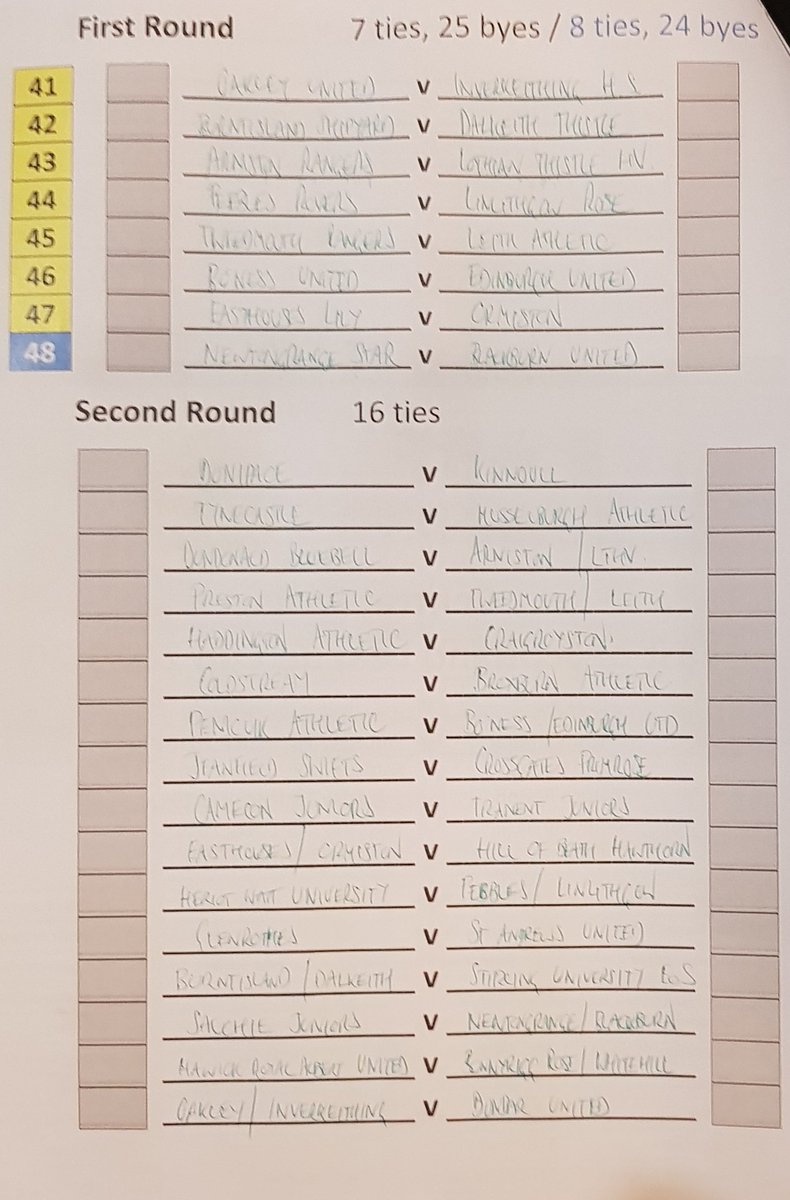 First Round 7 ties, 25 byes / 8 ties, 24 byes
41 OAKLEY UNITED v INVERKEITHING H.S
42 BURNTISLAND SHIPYARD v DALKEITH THISTLE
43 ARNISTON RANGERS v LOTHIAN THISTLE HV.
44 PEEBLES ROVERS v LINLITHGOW ROSE
45 TWEEDMOUTH RANGERS v LEITH ATHLETIC
46 BONESS UNITED v EDINBURGH UNITED
47 EASTHOUSES LILY v ORMISTON
48 NEWTONGRANGE STAR v BLACKBURN UNITED
Second Round 16 ties
DUNIPACE v KINNOULL
TYNECASTLE v MUSSELBURGH ATHLETIC
DUNDONALD BLUEBELL v ARNISTON / LTHV.
PRESTON ATHLETIC v TWEEDMOUTH / LEITH
HADDINGTON ATHLETIC v CRAIGROYSTON.
COLDSTREAM v BROXBURN ATHLETIC
PENICUIK ATHLETIC v BO'NESS / EDINBURGH UTD
JEANFIELD SWIFTS v CROSSGATES PRIMROSE
CAMELON JUNIORS v TRANENT JUNIORS
EASTHOUSES / ORMISTON v HILL OF BEATH HAWTHORN
HERIOT WATT UNIVERSITY v PEEBLES / LINLITHGOW
GLENROTHES v ST ANDREWS UNITED
BURNTISLAND / DALKEITH v STIRLING UNIVERSITY EoS
SAUCHIE JUNIORS v NEWTONGRANGE / BLACKBURN
HAWICK ROYAL ALBERT UNITED v BONNYRIGG ROSE / WHITEHILL
OAKLEY / INVERKEITHING v DUNBAR UNITED